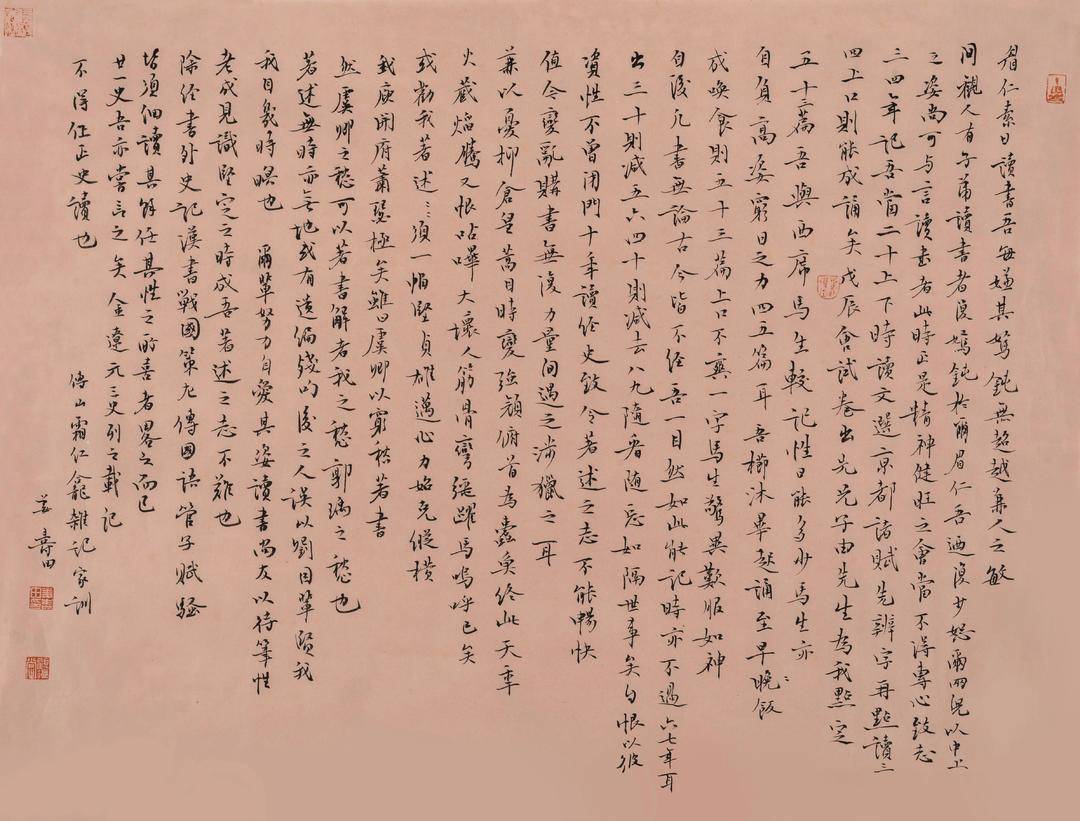 眉仁素日讀書吾每嫌其駑鈍無超越兼人之敏
間觀人有子弟讀書者復駑鈍於爾眉仁吾乃復少恕爾兩兒以中上
之姿尚可与言讀書者此時正是精神健旺之會當不得專心致志
三四年記吾當二十上下時讀文選京都諸賦先辨字再點讀三
四上口則能成誦矣戊辰會試卷出先兄子由先生為我點定
五十三篇吾與西席馬生較記性日能多少馬生亦
自負高姿窮日之力四五篇耳吾櫛沐畢起誦至早晚飯
成喚食則五十三篇上口不爽一字馬生驚異歎服如神
自後凡書無論古今皆不經吾一目然如此能記時亦不過六七年耳
出三十則減五六四十則減去八九隨看随忘如隔世事矣自恨以彼
資性不曾閉門十年讀经史致令著述之志不能暢快
值今變亂購書無復力量間遇之涉獵之耳
兼以憂抑倉皇蒿目時變強顏俯首為蠹魚終此天年
火藏焰騰又恨呫嗶大壞人筋骨彎強躍馬嗚呼已矣
或勸我著述〻須一幅堅貞雄邁心力始克縱橫
我庾開府蕭瑟極矣雖曰虞卿以窮愁著書
然虞卿之愁可以著書解者我之愁郭瑀之愁也
著述無時亦無地或有遺編殘句後之人誤以劉因輩賢我
我目幾時瞑也　爾輩努力自愛其姿讀書尚友以待筆性
老成見識堅定之時成吾著述之志不難也
除经書外史記漢書戰國策左傳國語管子賦騷
皆須細讀其餘任其性之所喜者畧之而已
廿一史吾亦嘗言之矣金遼元三史列之載記
不得作正史讀也
傅山霜仁龕雜記家訓
姜壽田